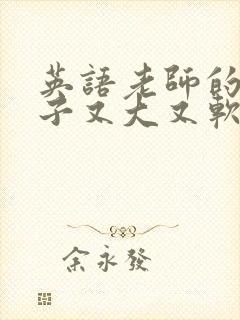 英語老師的
子又大又軟
余永發